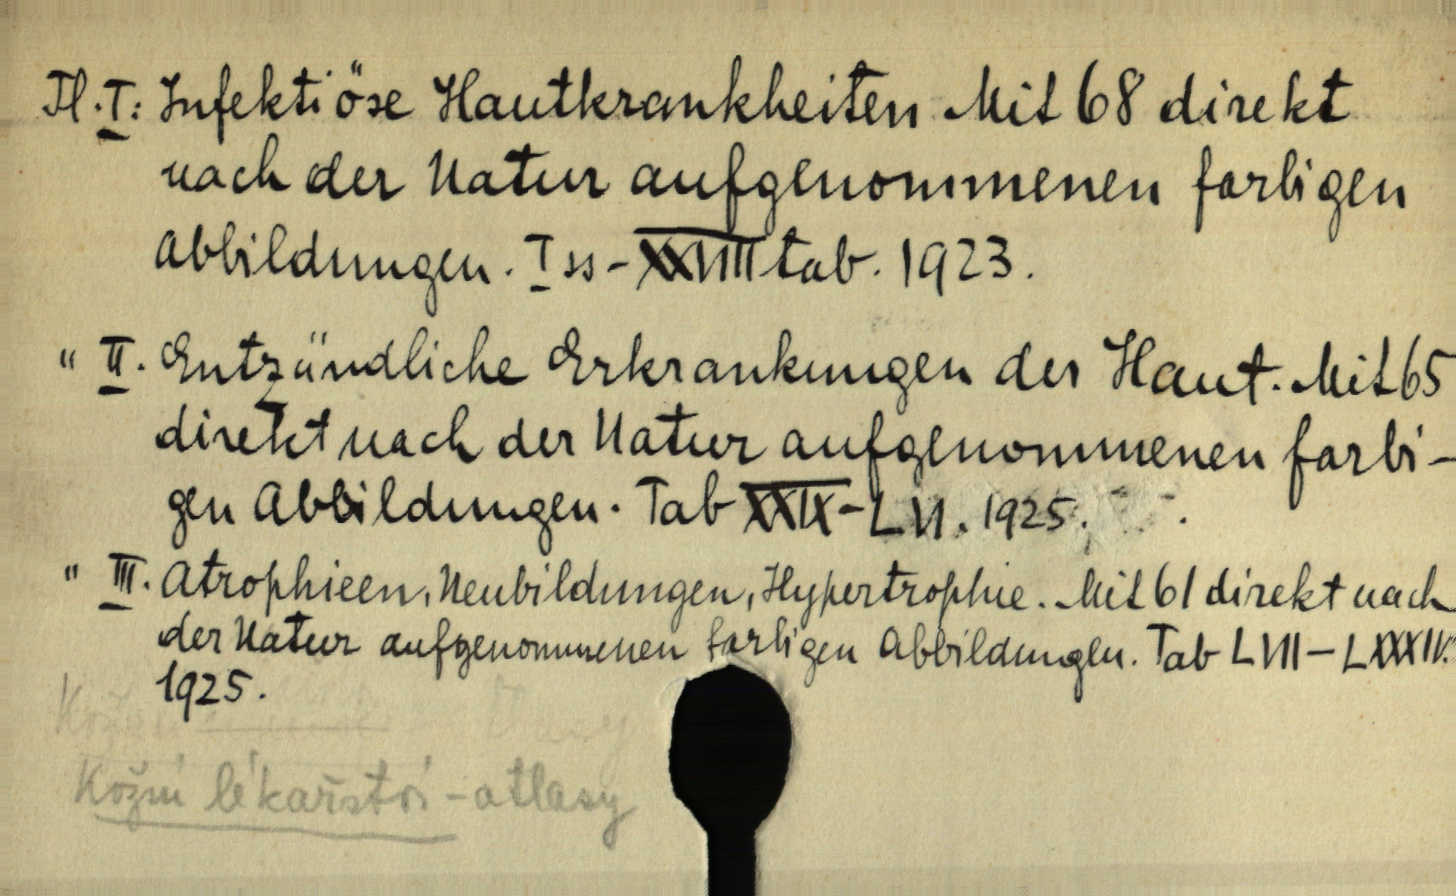 Tl. I: Infektiöse Hautkrankheiten Mit 68 direkt
nach der Natur aufgenommenen farbigen
Abbildungen. I ss - XXVIII tab. 1923.
" II. Entzündliche Erkrankungen der Haut. Mit 65
direkt nach der Natur aufgenommenen farbi-
gen Abbildungen. Tab XXIX - LVI. 1925.
" III. Atrophieen, Neubildungen, Hypertrophie. Mit 61 direkt nach
der Natur aufgenommenen farbigen Abbildungen. Tab LVII - LXXXIV.
1925.
Kožní
Kožní lékařství - atlasy